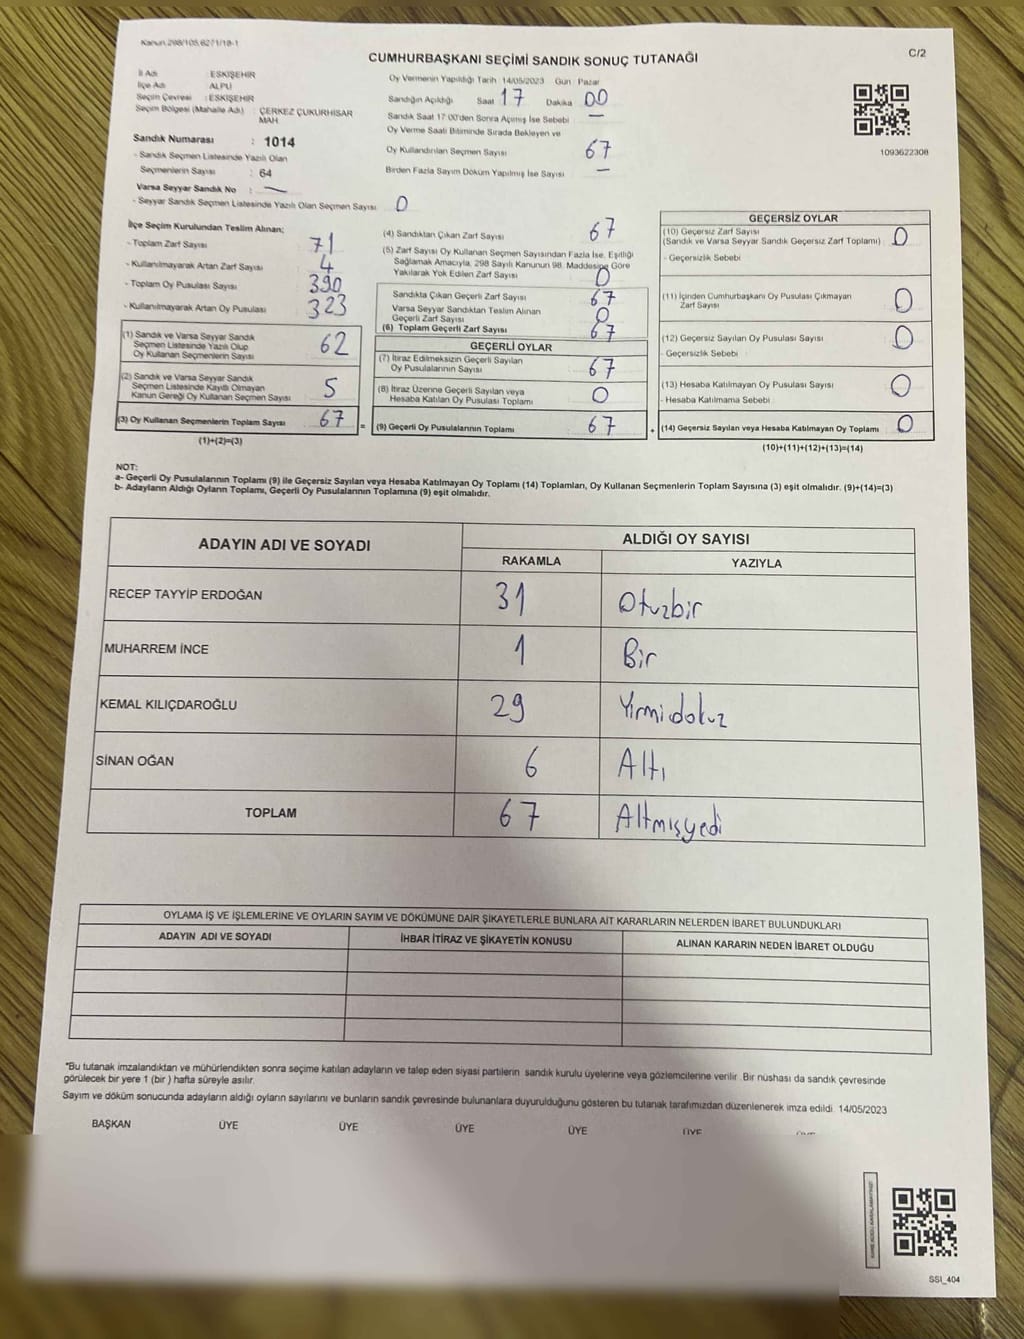 Kanun.298/105,6271/18-1
CUMHURBAŞKANI SEÇİMİ SANDIK SONUÇ TUTANAĞI
C/2
İl Adı : ESKİŞEHİR
İlçe Adı : ALPU
Seçim Çevresi : ESKİŞEHİR
Seçim Bölgesi (Mahalle Adı) : ÇERKEZ ÇUKURHİSAR MAH
Sandık Numarası : 1014
- Sandık Seçmen Listesinde Yazılı Olan
Seçmenlerin Sayısı : 64
Varsa Seyyar Sandık No : —
- Seyyar Sandık Seçmen Listesinde Yazılı Olan Seçmen Sayısı 0
Oy Vermenin Yapıldığı Tarih : 14/05/2023 Gün : Pazar
Sandığın Açıldığı Saat 17 Dakika 00
Sandık Saat 17:00'den Sonra Açımış İse Sebebi —
Oy Verme Saati Bitiminde Sırada Bekleyen ve
Oy Kullandırılan Seçmen Sayısı 67
Birden Fazla Sayım Döküm Yapılmış İse Sayısı —
1093622308
İlçe Seçim Kurulundan Teslim Alınan;
- Toplam Zarf Sayısı 71
- Kullanılmayarak Artan Zarf Sayısı 4
- Toplam Oy Pusulası Sayısı 390
- Kullanılmayarak Artan Oy Pusulası 323
(1) Sandık ve Varsa Seyyar Sandık
Seçmen Listesinde Yazılı Olup
Oy Kullanan Seçmenlerin Sayısı 62
(2) Sandık ve Varsa Seyyar Sandık
Seçmen Listesinde Kayıtlı Olmayan
Kanun Gereği Oy Kullanan Seçmen Sayısı 5
(3) Oy Kullanan Seçmenlerin Toplam Sayısı 67
(1)+(2)=(3)
=
(4) Sandıktan Çıkan Zarf Sayısı 67
(5) Zarf Sayısı Oy Kullanan Seçmen Sayısından Fazla İse, Eşitliği
Sağlamak Amacıyla, 298 Sayılı Kanunun 98. Maddesine Göre
Yakılarak Yok Edilen Zarf Sayısı 0
Sandıkta Çıkan Geçerli Zarf Sayısı 67
Varsa Seyyar Sandıktan Teslim Alınan
Geçerli Zarf Sayısı 0
(6) Toplam Geçerli Zarf Sayısı 67
GEÇERLİ OYLAR
(7) İtiraz Edilmeksizin Geçerli Sayılan
Oy Pusulalarının Sayısı 67
(8) İtiraz Üzerine Geçerli Sayılan veya
Hesaba Katılan Oy Pusulası Toplamı 0
(9) Geçerli Oy Pusulalarının Toplamı 67
+
GEÇERSİZ OYLAR
(10) Geçersiz Zarf Sayısı
(Sandık ve Varsa Seyyar Sandık Geçersiz Zarf Toplamı) 0
- Geçersizlik Sebebi
(11) İçinden Cumhurbaşkanı Oy Pusulası Çıkmayan
Zarf Sayısı 0
(12) Geçersiz Sayılan Oy Pusulası Sayısı 0
- Geçersizlik Sebebi
(13) Hesaba Katılmayan Oy Pusulası Sayısı 0
- Hesaba Katılmama Sebebi
(14) Geçersiz Sayılan veya Hesaba Katılmayan Oy Toplamı 0
(10)+(11)+(12)+(13)=(14)
NOT:
a- Geçerli Oy Pusulalarının Toplamı (9) ile Geçersiz Sayılan veya Hesaba Katılmayan Oy Toplamı (14) Toplamları, Oy Kullanan Seçmenlerin Toplam Sayısına (3) eşit olmalıdır. (9)+(14)=(3)
b- Adayların Aldığı Oyların Toplamı, Geçerli Oy Pusulalarının Toplamına (9) eşit olmalıdır.
ADAYIN ADI VE SOYADI
ALDIĞI OY SAYISI
RAKAMLA YAZIYLA
RECEP TAYYİP ERDOĞAN 31 Otuzbir
MUHARREM İNCE 1 Bir
KEMAL KILIÇDAROĞLU 29 Yirmidokuz
SİNAN OĞAN 6 Altı
TOPLAM 67 Altmışyedi
OYLAMA İŞ VE İŞLEMLERİNE VE OYLARIN SAYIM VE DÖKÜMÜNE DAİR ŞİKAYETLERLE BUNLARA AİT KARARLARIN NELERDEN İBARET BULUNDUKLARI
ADAYIN ADI VE SOYADI İHBAR İTİRAZ VE ŞİKAYETİN KONUSU ALINAN KARARIN NEDEN İBARET OLDUĞU
*Bu tutanak imzalandıktan ve mühürlendikten sonra seçime katılan adayların ve talep eden siyasi partilerin sandık kurulu üyelerine veya gözlemcilerine verilir. Bir nüshası da sandık çevresinde
görülecek bir yere 1 (bir ) hafta süreyle asılır.
Sayım ve döküm sonucunda adayların aldığı oyların sayılarını ve bunların sandık çevresinde bulunanlara duyurulduğunu gösteren bu tutanak tarafımızdan düzenlenerek imza edildi. 14/05/2023
BAŞKAN ÜYE ÜYE ÜYE ÜYE ÜYE
SSI_404